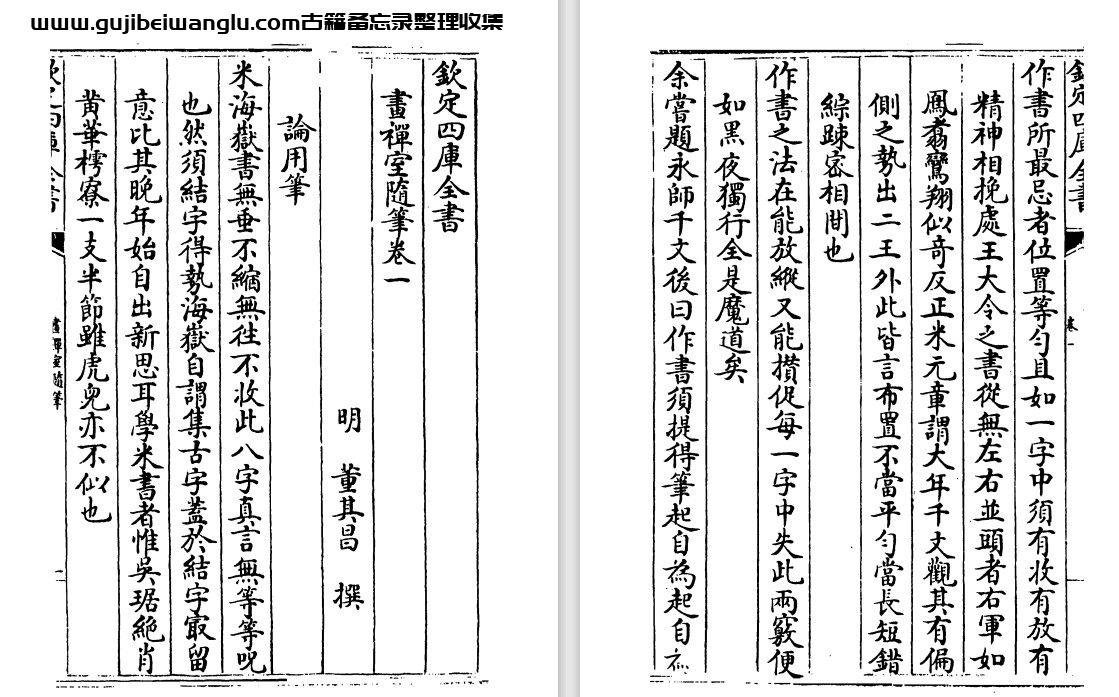 www.gujibeiwanglu.com古籍备忘录整理收集
欽定四庫全書
畫禪室隨筆卷一
明 董其昌 撰
論用筆
米海嶽書無垂不縮無往不收此八字真言無等等呪
也然須結字得勢海嶽自謂集古字蓋於結字冣留
意比其晚年始自出新思耳學米書者惟吳琚絕肖
黃華樗寮一支半節雖虎兒亦不似也
欽定四庫全書
畫禪室隨筆
欽定四庫全書
卷一
作書所最忌者位置等勻且如一字中須有收有放有
精神相挽處王大令之書從無左右並頭者右軍如
鳳翥鸞翔似奇反正米元章謂大年千文觀其有偏
側之勢出二王外此皆言布置不當平勻當長短錯
綜踈密相間也
作書之法在能放縱又能攢促每一字中失此兩竅便
如黑夜獨行全是魔道矣
余嘗題永師千文後曰作書須提得筆起自為起自為